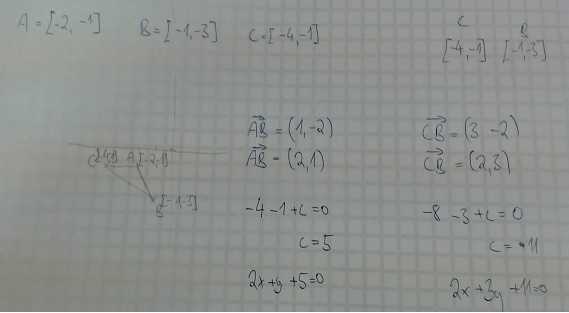 A = [-2, -1] B = [-1, -3] C = [-4, -1]
C B
[-4, -1] [-1, -3]
C A [-2, -1]
B [-1, -3]
AB = (1, -2)
AB = (2, 1)
-4 -1 + c = 0
c = 5
2x + y + 5 = 0
CB = (3 -2)
CB = (2, 3)
-8 -3 + c = 0
c = 11
2x + 3y + 11 = 0